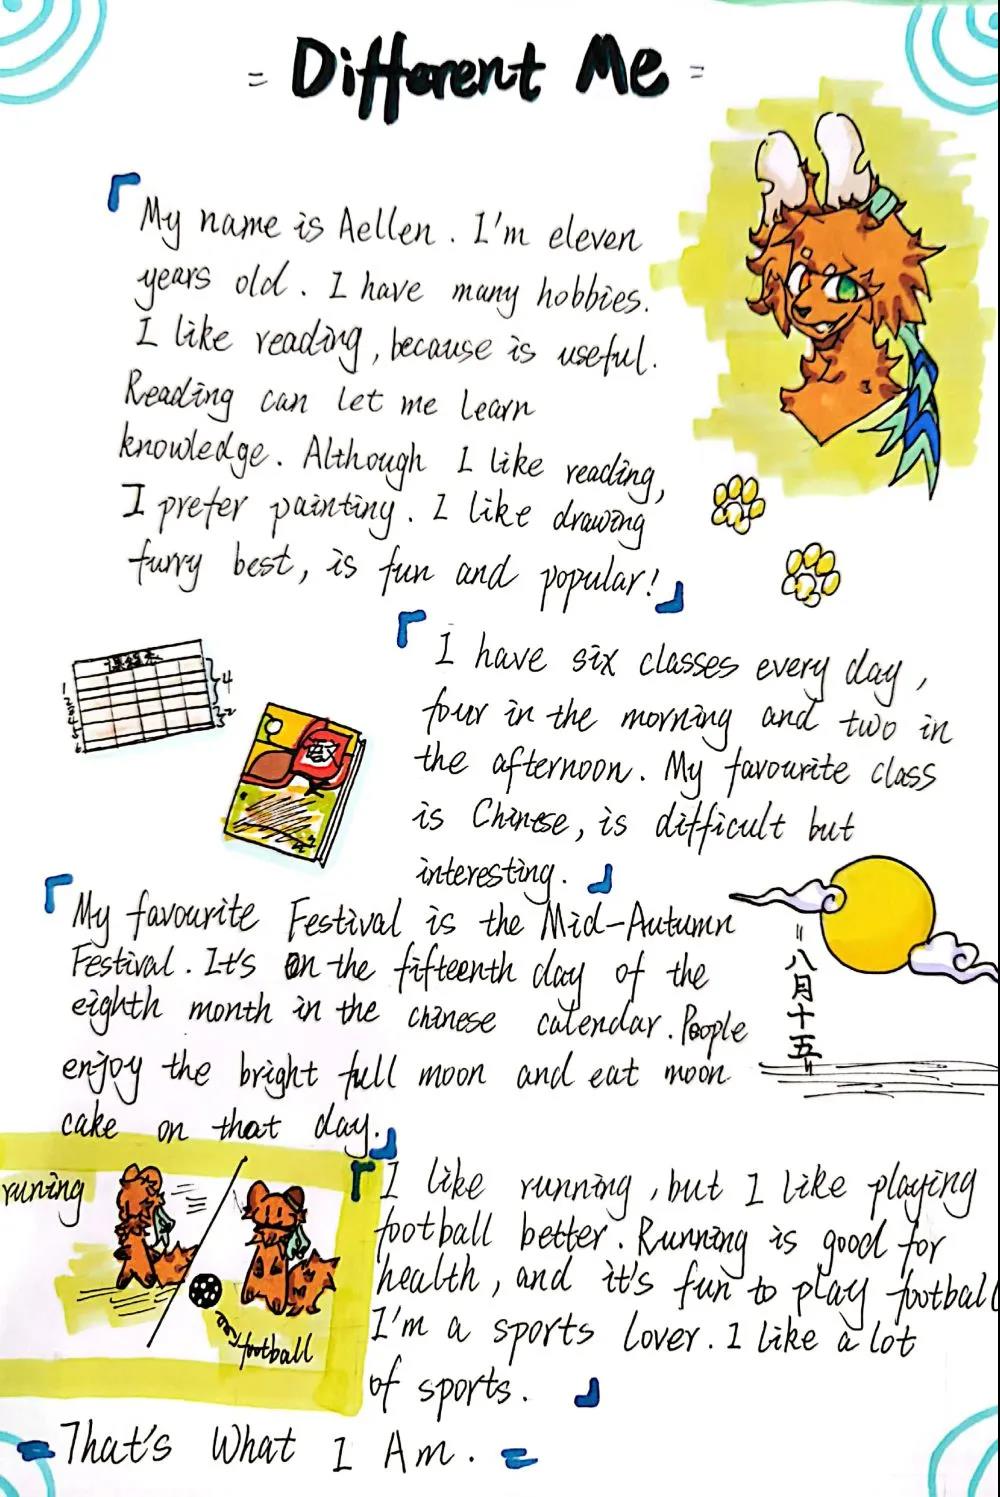 = Different Me =
My name is Aellen. I'm eleven
years old. I have many hobbies.
I like reading, because is useful.
Reading can let me learn
knowledge. Although I like reading,
I prefer painting. I like drawing
furry best, is fun and popular!
课程表
1
2
3
4
5
6
4
2
语文
I have six classes every day,
four in the morning and two in
the afternoon. My favourite class
is Chinese, is difficult but
interesting.
My favourite Festival is the Mid-Autumn
Festival. It's on the fifteenth day of the
eighth month in the chinese calendar. People
enjoy the bright full moon and eat moon
cake on that day.
八月十五
runing
football
I like running, but I like playing
football better. Running is good for
health, and it's fun to play football
I'm a sports lover. I like a lot
of sports.
= That's What I Am. =